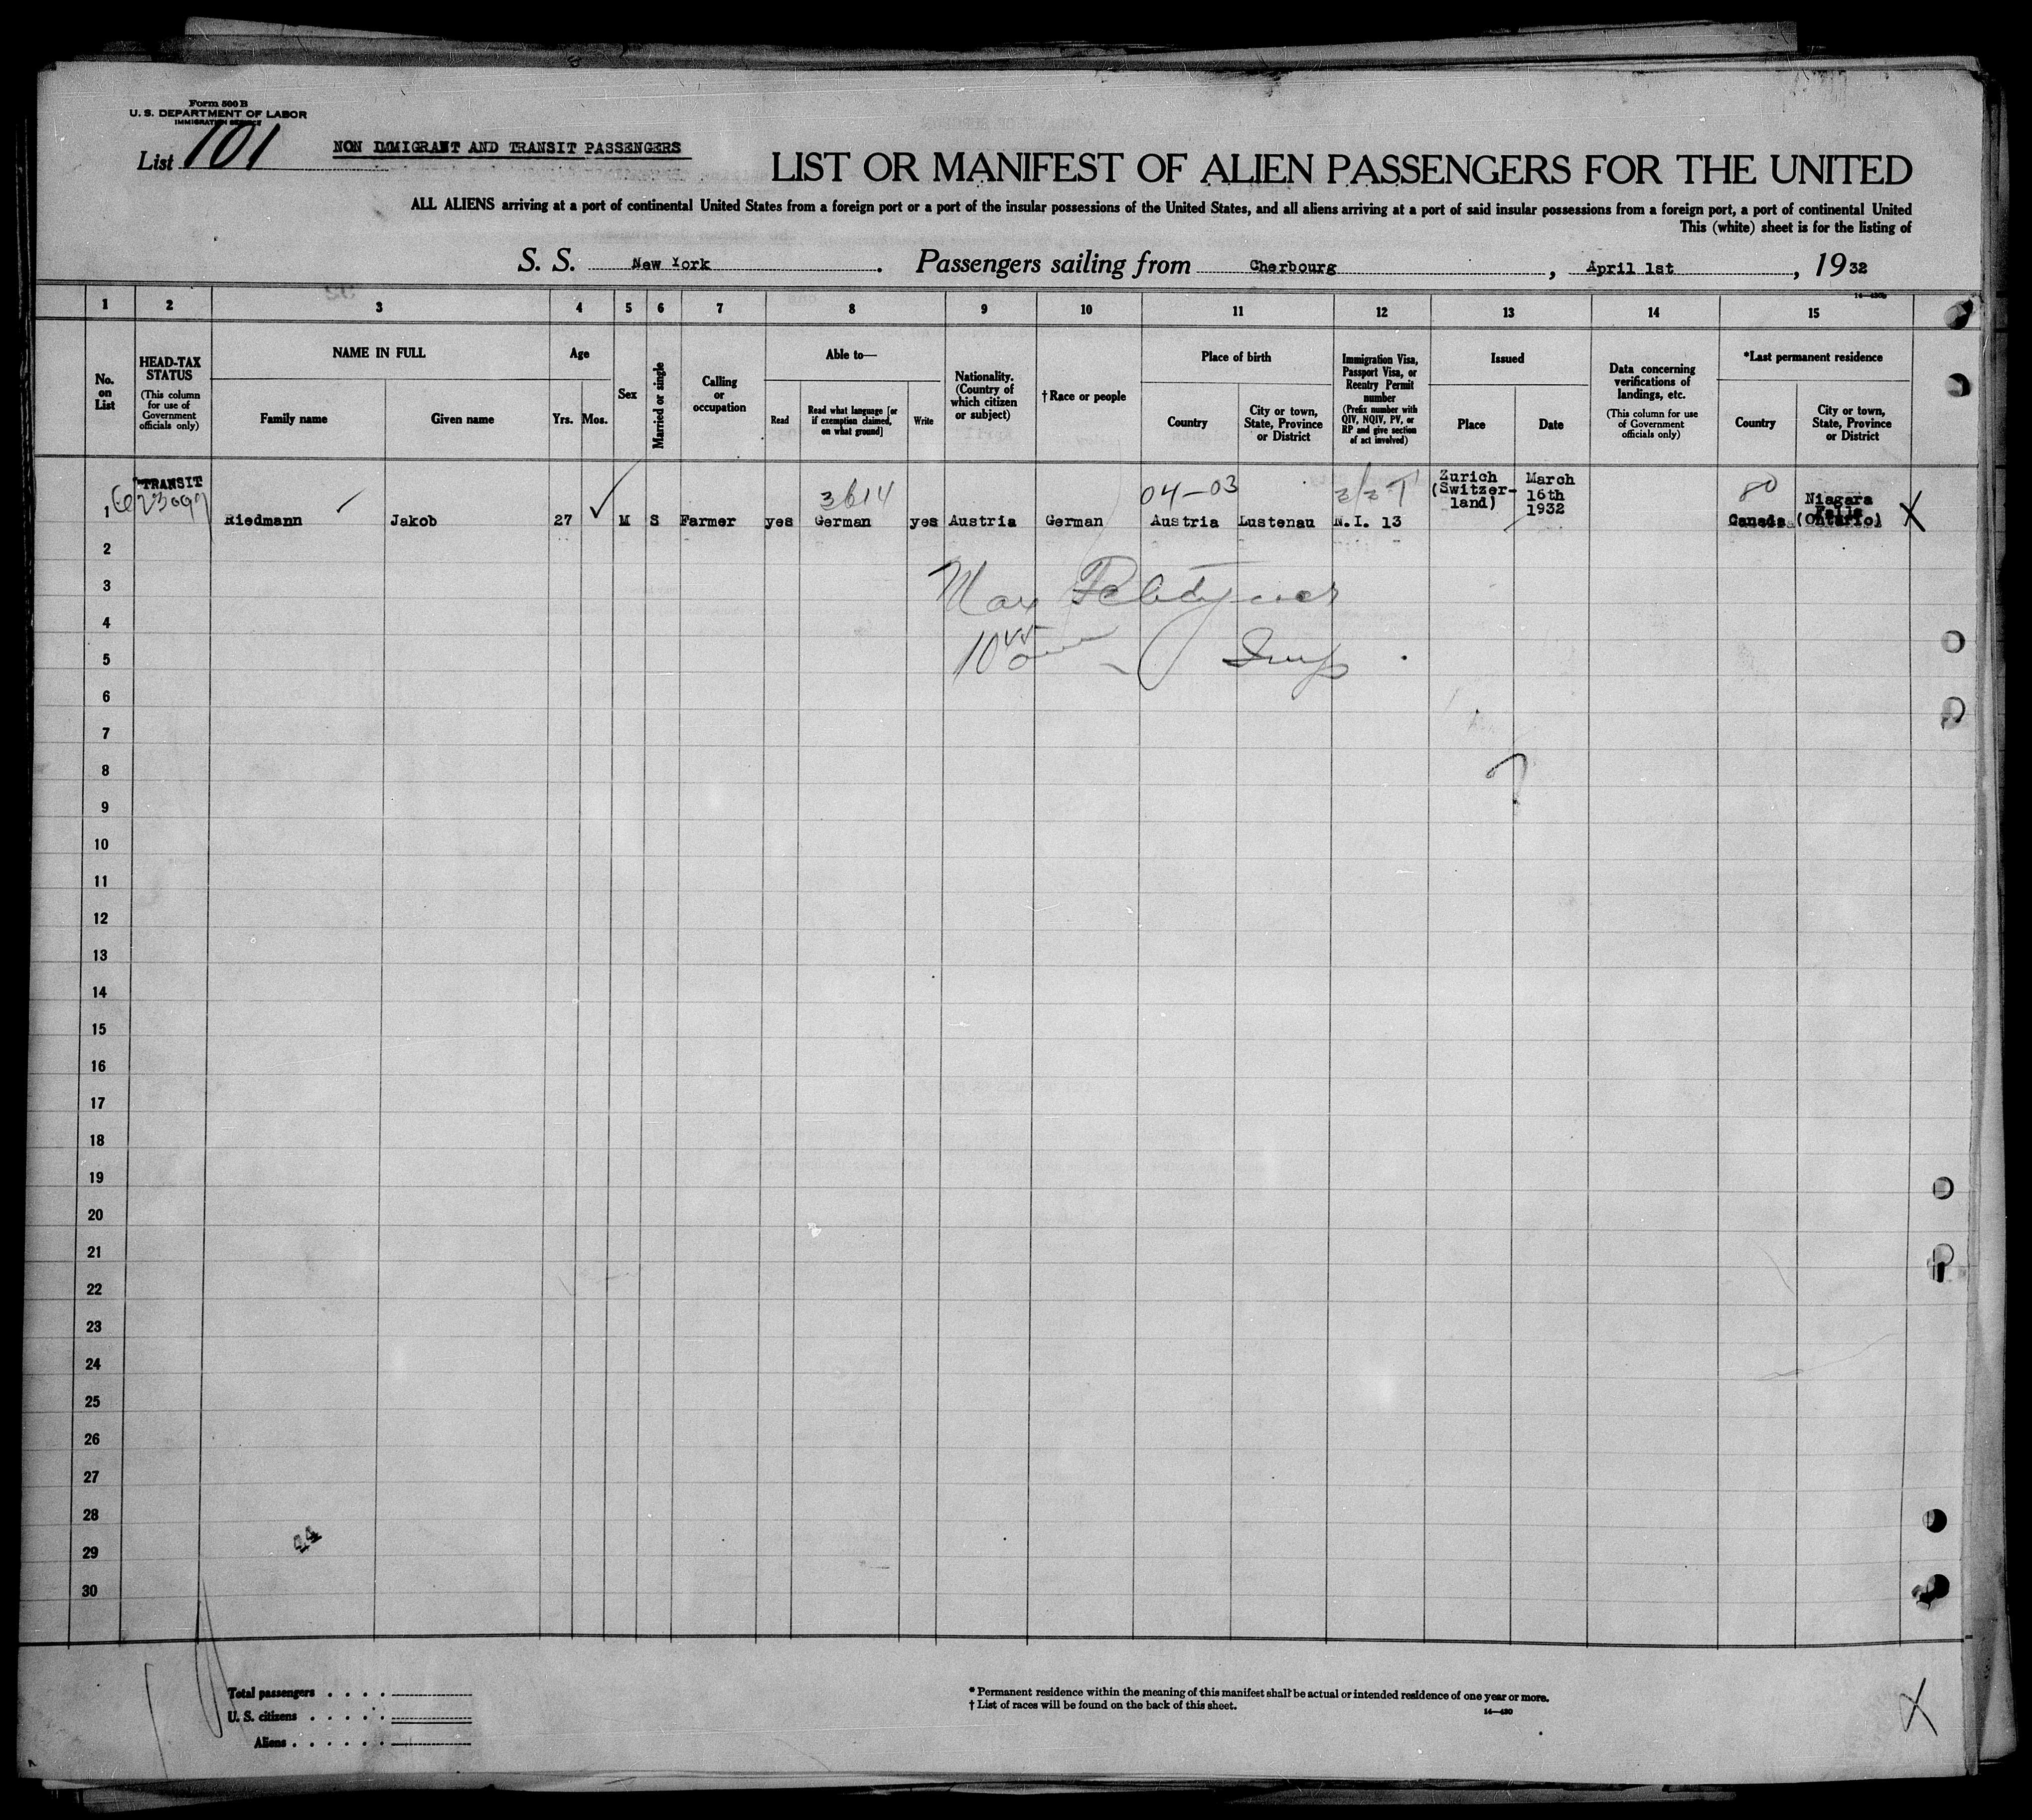 Form 500 B
U. S. DEPARTMENT OF LABOR
IMMIGRATION SERVICE
List 101
NON IMMIGRANT AND TRANSIT PASSENGERS
LIST OR MANIFEST OF ALIEN PASSENGERS FOR THE UNITED
ALL ALIENS arriving at a port of continental United States from a foreign port or a port of the insular possessions of the United States, and all aliens arriving at a port of said insular possessions from a foreign port, a port of continental United
This (white) sheet is for the listing of
S. S. New York. Passengers sailing from Cherbourg, April 1st, 1932
1 2 3 4 5 6 7 8 9 10 11 12 13 14 15
No. on List
HEAD-TAX STATUS (This column for use of Government officials only)
NAME IN FULL
Family name
Given name
Age
Yrs.
Mos.
Sex
Married or single
Calling or occupation
Able to—
Read
Read what language [or if exemption claimed, on what ground]
Write
Nationality. (Country of which citizen or subject)
†Race or people
Place of birth
Country
City or town, State, Province or District
Immigration Visa, Passport Visa, or Reentry Permit number (Prefix number with QIV, NQIV, PV, or RP and give section of act involved)
Issued
Place
Date
Data concerning verifications of landings, etc. (This column for use of Government officials only)
*Last permanent residence
Country
City or town, State, Province or District
TRANSIT
3614
04-03
80
1 Riedmann Jakob 27 M S Farmer yes German yes Austria German Austria Lustenau N.I. 13 Zurich (Switzer-land) March 16th 1932 Canada Niagara Falls (Ontario) X
2
3
4
5
6
7
8
9
10
11
12
13
14
15
16
17
18
19
20
21
22
23
24
25
26
27
28
29
30
Total passengers
U. S. citizens
Aliens
* Permanent residence within the meaning of this manifest shall be actual or intended residence of one year or more.
† List of races will be found on the back of this sheet.
14—430
X